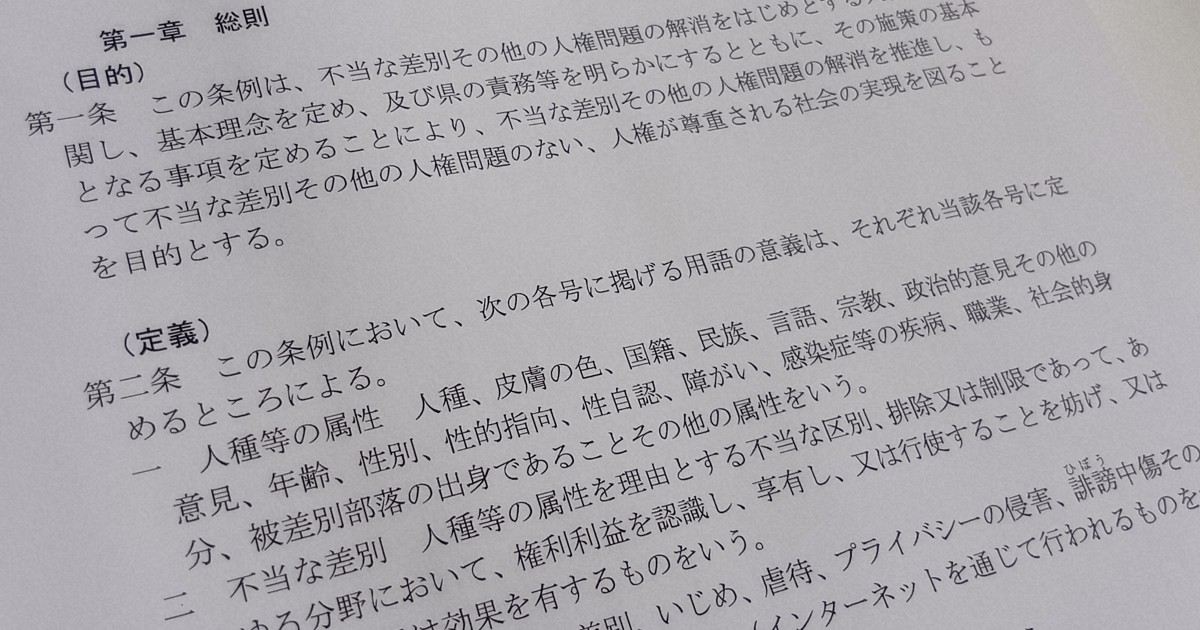 第一章　総則
（目的）
第一条　この条例は、不当な差別その他の人権問題の解消をはじめとする
関し、基本理念を定め、及び県の責務等を明らかにするとともに、その施策の基本
となる事項を定めることにより、不当な差別その他の人権問題の解消を推進し、も
って不当な差別その他の人権問題のない、人権が尊重される社会の実現を図ること
を目的とする。
（定義）
第二条　この条例において、次の各号に掲げる用語の意義は、それぞれ当該各号に定
めるところによる。
一　人種等の属性　人種、皮膚の色、国籍、民族、言語、宗教、政治的意見その他の
意見、年齢、性別、性的指向、性自認、障がい、感染症等の疾病、職業、社会的身
分、被差別部落の出身であることその他の属性をいう。
二　不当な差別　人種等の属性を理由とする不当な区別、排除又は制限であって、あ
ゆる分野において、権利利益を認識し、享有し、又は行使することを妨げ、又は
は効果を有するものをいう。
ひぼう
差別、いじめ、虐待、プライバシーの侵害、誹謗中傷その
インターネットを通じて行われるものを